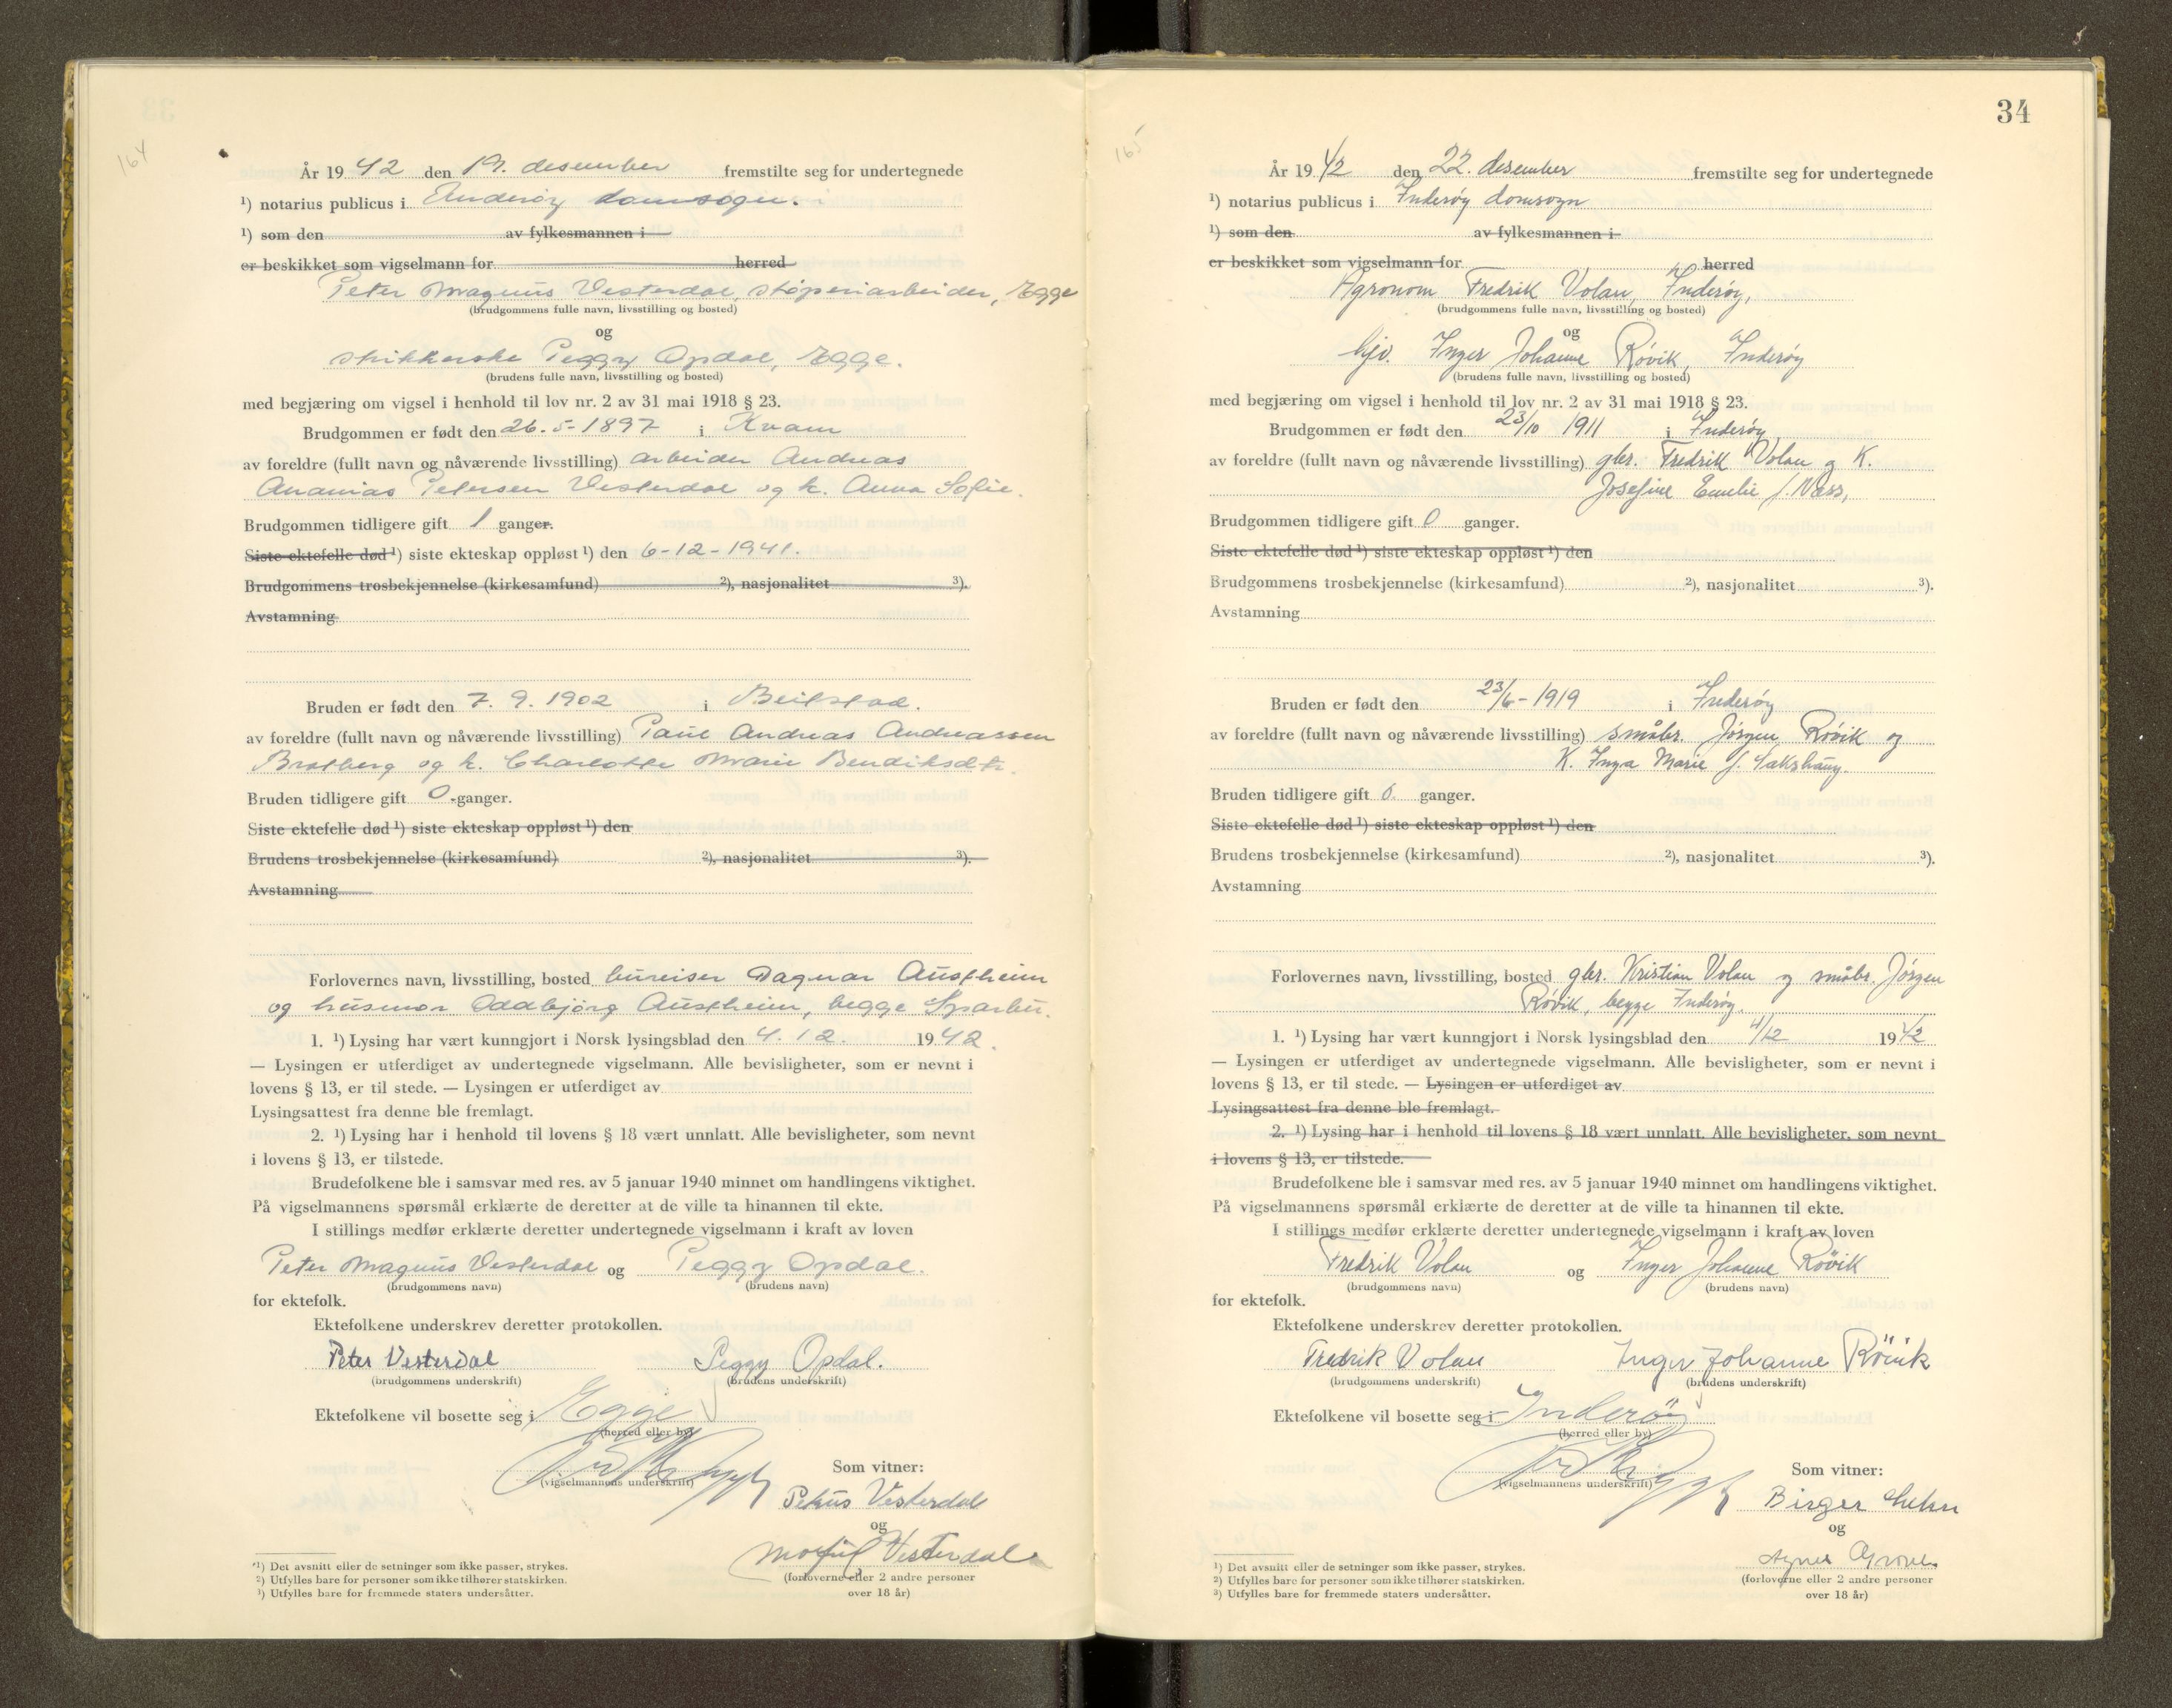 164
År 1942 den 19. desember fremstilte seg for undertegnede
¹) notarius publicus i Inderøy domsogn.
¹) som den av fylkesmannen i
er beskikket som vigselmann for herred
Peter Magnus Vesterdal, støperiarbeider, Egge
(brudgommens fulle navn, livsstilling og bosted)
og
strikkerske Peggy Opdal, Egge.
(brudens fulle navn, livsstilling og bosted)
med begjæring om vigsel i henhold til lov nr. 2 av 31 mai 1918 § 23.
Brudgommen er født den 26-5-1897 i Kvam
av foreldre (fullt navn og nåværende livsstilling) arbeider Andreas
Ananias Petersen Vesterdal og k. Anna Sofie.
Brudgommen tidligere gift 1 ganger.
Siste ektefelle død ¹) siste ekteskap oppløst ¹) den 6-12-1941.
Brudgommens trosbekjennelse (kirkesamfund) ²), nasjonalitet ³).
Avstamning
Bruden er født den 7. 9. 1902 i Beitstad.
av foreldre (fullt navn og nåværende livsstilling) Paul Andreas Andreassen
Bratberg og k. Charlotte Marie Bendiksdtr.
Bruden tidligere gift 0 ganger.
Siste ektefelle død ¹) siste ekteskap oppløst ¹) den
Brudens trosbekjennelse (kirkesamfund) ²), nasjonalitet ³).
Avstamning
Forlovernes navn, livsstilling, bosted bureiser Dagnar Austheim
og husmor Oddbjörg Austheim, begge Sparbu.
1. ¹) Lysing har vært kunngjort i Norsk lysingsblad den 4. 12. 1942.
— Lysingen er utferdiget av undertegnede vigselmann. Alle bevisligheter, som er nevnt i
lovens § 13, er til stede. — Lysingen er utferdiget av
Lysingsattest fra denne ble fremlagt.
2. ¹) Lysing har i henhold til lovens § 18 vært unnlatt. Alle bevisligheter, som nevnt
i lovens § 13, er tilstede.
Brudefolkene ble i samsvar med res. av 5 januar 1940 minnet om handlingens viktighet.
På vigselmannens spørsmål erklærte de deretter at de ville ta hinannen til ekte.
I stillings medfør erklærte deretter undertegnede vigselmann i kraft av loven
Peter Magnus Vesterdal og Peggy Opdal.
(brudgommens navn) (brudens navn)
for ektefolk.
Ektefolkene underskrev deretter protokollen.
Peter Vesterdal Peggy Opdal.
(brudgommens underskrift) (brudens underskrift)
Ektefolkene vil bosette seg i Egge
(herred eller by)
(vigselmannens underskrift)
Som vitner:
Petrus Vesterdal
og
Vesterdal
(forloverne eller 2 andre personer
over 18 år)
¹) Det avsnitt eller de setninger som ikke passer, strykes.
²) Utfylles bare for personer som ikke tilhører statskirken.
³) Utfylles bare for fremmede staters undersåtter.
34
165
År 1942 den 22. desember fremstilte seg for undertegnede
¹) notarius publicus i Inderøy domsogn
¹) som den av fylkesmannen i
er beskikket som vigselmann for herred
Agronom Fredrik Volan, Inderøy,
(brudgommens fulle navn, livsstilling og bosted)
og
hjv. Inger Johanne Røvik, Inderøy
(brudens fulle navn, livsstilling og bosted)
med begjæring om vigsel i henhold til lov nr. 2 av 31 mai 1918 § 23.
Brudgommen er født den 23/10 1911 i Inderøy
av foreldre (fullt navn og nåværende livsstilling) gbr. Fredrik Volan og K.
Josefine Emelie f. Næss,
Brudgommen tidligere gift 0 ganger.
Siste ektefelle død ¹) siste ekteskap oppløst ¹) den
Brudgommens trosbekjennelse (kirkesamfund) ²), nasjonalitet ³).
Avstamning
Bruden er født den 23/6-1919 i Inderøy
av foreldre (fullt navn og nåværende livsstilling) småbr. Jørgen Røvik og
K. Inga Marie f. Sakshaug.
Bruden tidligere gift 0. ganger.
Siste ektefelle død ¹) siste ekteskap oppløst ¹) den
Brudens trosbekjennelse (kirkesamfund) ²), nasjonalitet ³).
Avstamning
Forlovernes navn, livsstilling, bosted gbr. Kristian Volan og småbr. Jørgen
Røvik, begge Inderøy.
1. ¹) Lysing har vært kunngjort i Norsk lysingsblad den 4/12 1942
— Lysingen er utferdiget av undertegnede vigselmann. Alle bevisligheter, som er nevnt i
lovens § 13, er til stede. — Lysingen er utferdiget av
Lysingsattest fra denne ble fremlagt.
2. ¹) Lysing har i henhold til lovens § 18 vært unnlatt. Alle bevisligheter, som nevnt
i lovens § 13, er tilstede.
Brudefolkene ble i samsvar med res. av 5 januar 1940 minnet om handlingens viktighet.
På vigselmannens spørsmål erklærte de deretter at de ville ta hinannen til ekte.
I stillings medfør erklærte deretter undertegnede vigselmann i kraft av loven
Fredrik Volan og Inger Johanne Røvik
(brudgommens navn) (brudens navn)
for ektefolk.
Ektefolkene underskrev deretter protokollen.
Fredrik Volan Inger Johanne Rövik
(brudgommens underskrift) (brudens underskrift)
Ektefolkene vil bosette seg i Inderöy
(herred eller by)
(vigselmannens underskrift)
Som vitner:
Birger
og
Agnes
(forloverne eller 2 andre personer
over 18 år)
¹) Det avsnitt eller de setninger som ikke passer, strykes.
²) Utfylles bare for personer som ikke tilhører statskirken.
³) Utfylles bare for fremmede staters undersåtter.